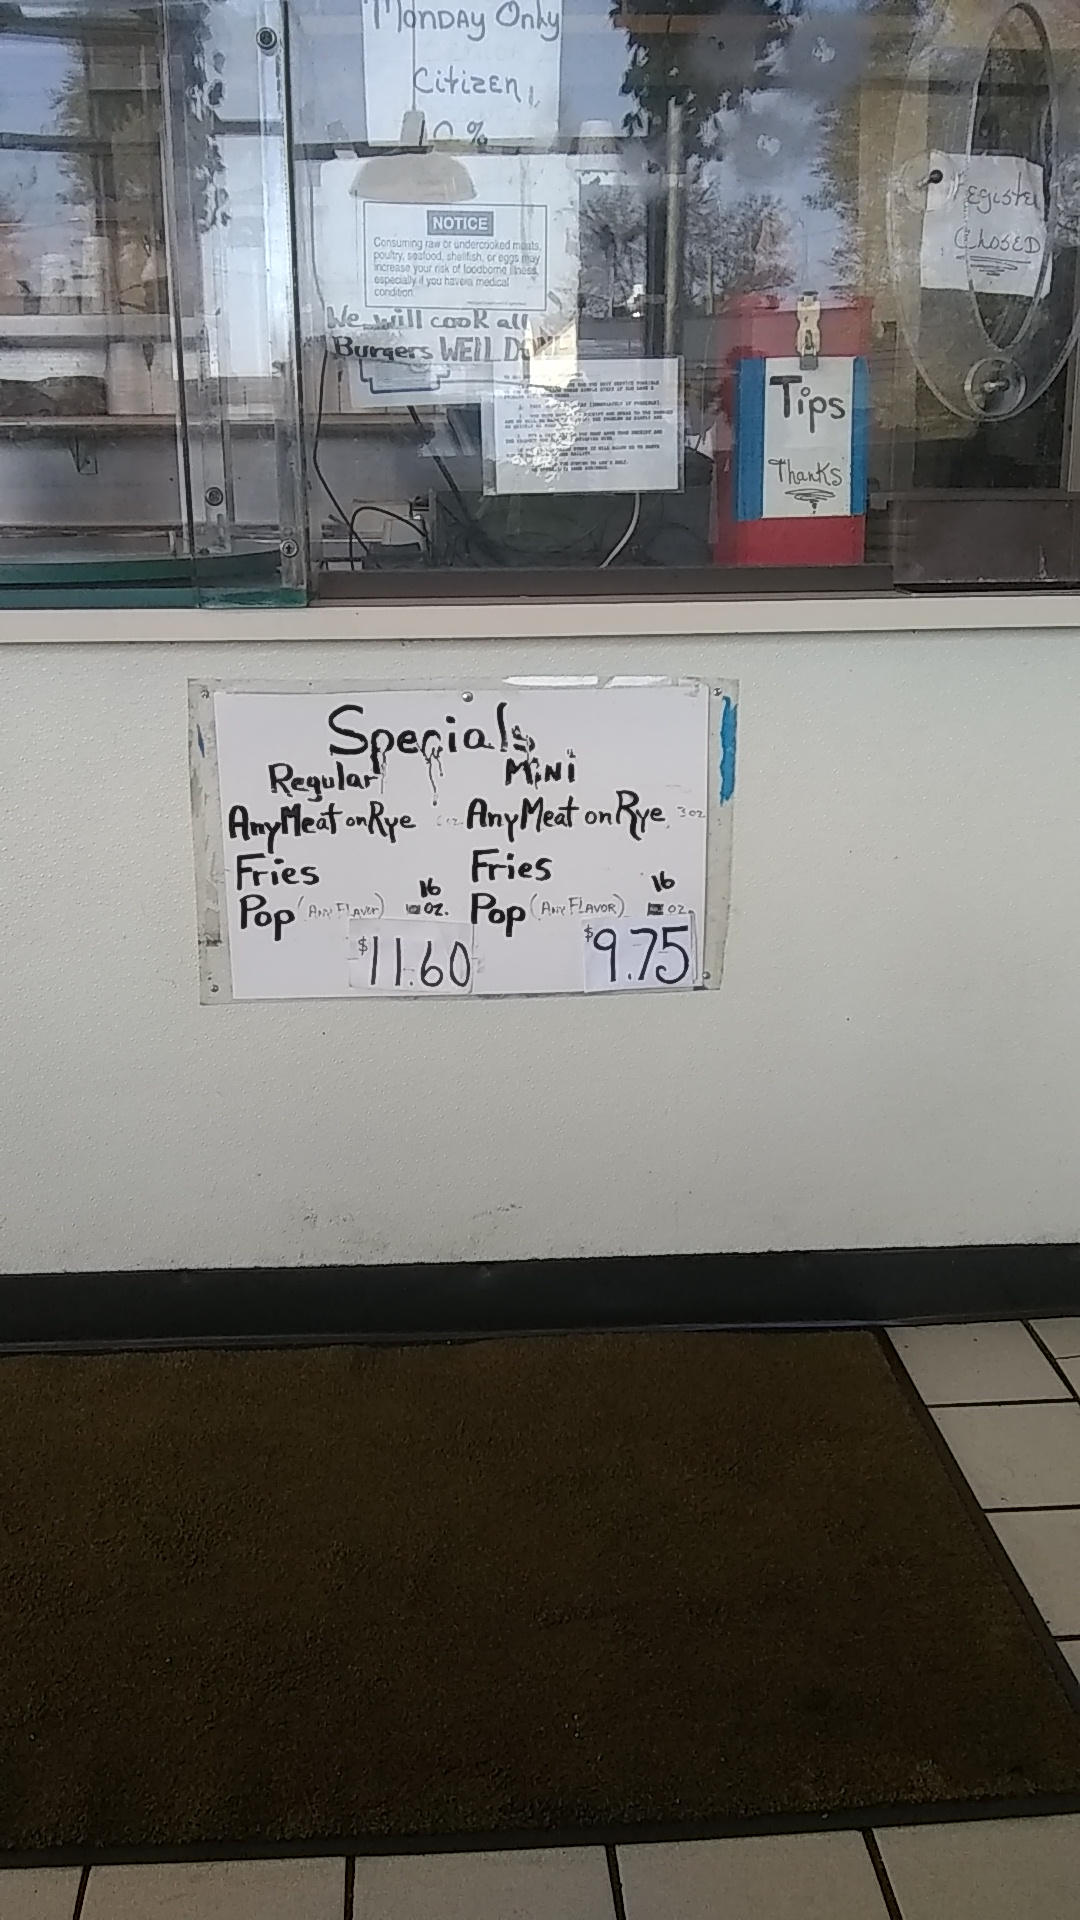 Monday Only
Citizen,
10%
NOTICE
Consuming raw or undercooked meats,
poultry, seafood, shellfish, or eggs may
increase your risk of foodborne illness,
especially if you have a medical
condition.
We will cook all
Burgers WELL DONE
Register
Closed
Tips
Thanks
Specials
Regular
Any Meat on Rye
Fries
Pop (Any Flavor) 16 oz.
$11.60
Mini
Any Meat on Rye 3 oz
Fries
Pop (Any Flavor) 16 oz.
$9.75